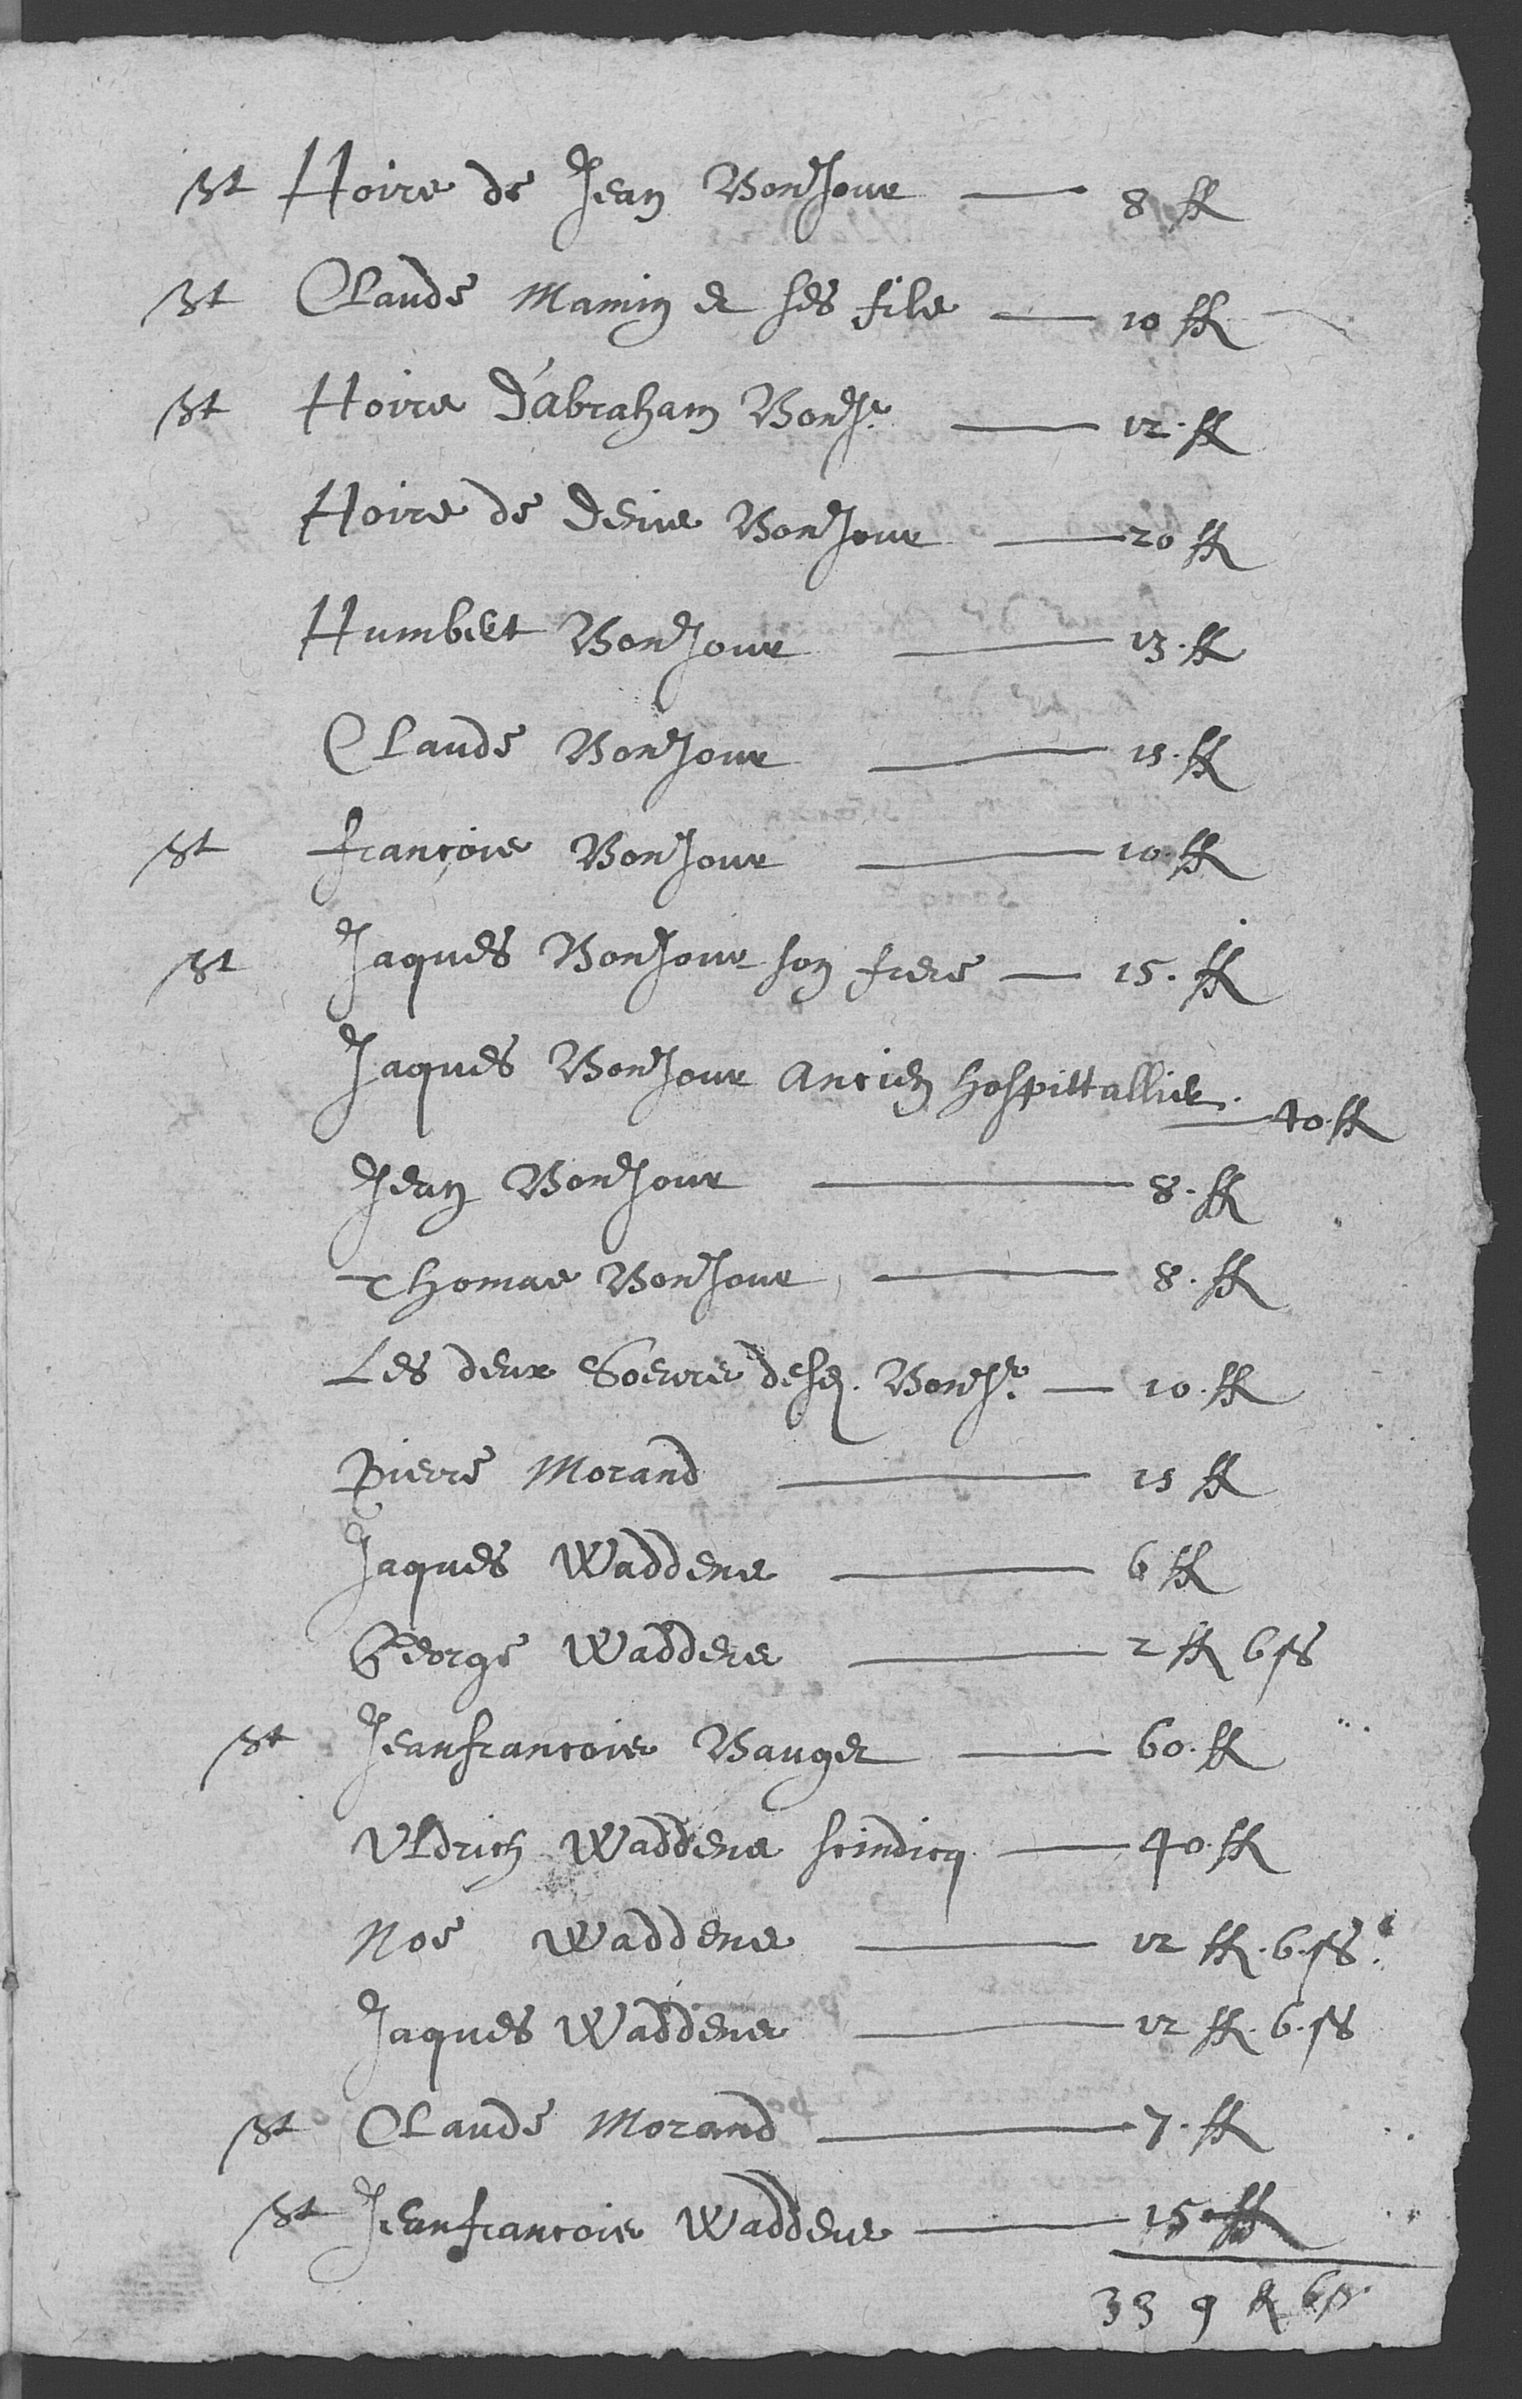 st Hoirs de Jean BonJour — 8 ff
st Claude Mamin et ses fils — 10 ff
st Hoirs d'abraham BonJr. — 12. ff
Hoirs de Denis BonJour — 20 ff
Humbert BonJour — 13. ff
Claude BonJour — 15. ff
st françois BonJour — 10. ff
st Jaques BonJour son frere — 15. ff
Jaques BonJour Ancien hospittallier. — 40. ff
Jean BonJour — 8. ff
Thomas BonJour — 8. ff
Les deux Soeurs desd. BonJr. — 10. ff
Pierre Morand — 15 ff
Jaques Waddens — 6 ff
George Waddens — 2 ff 6 ss
st Jeanfrancois Bauget — 60. ff
Uldrich Waddens scindicq — 40. ff
Noe Waddens — 12 ff. 6. ss.
Jaques Waddens — 12 ff. 6. ss
st Claude Morand — 7. ff
st Jeanfrancois Waddens — 15. ff
339 ff 6 ss.